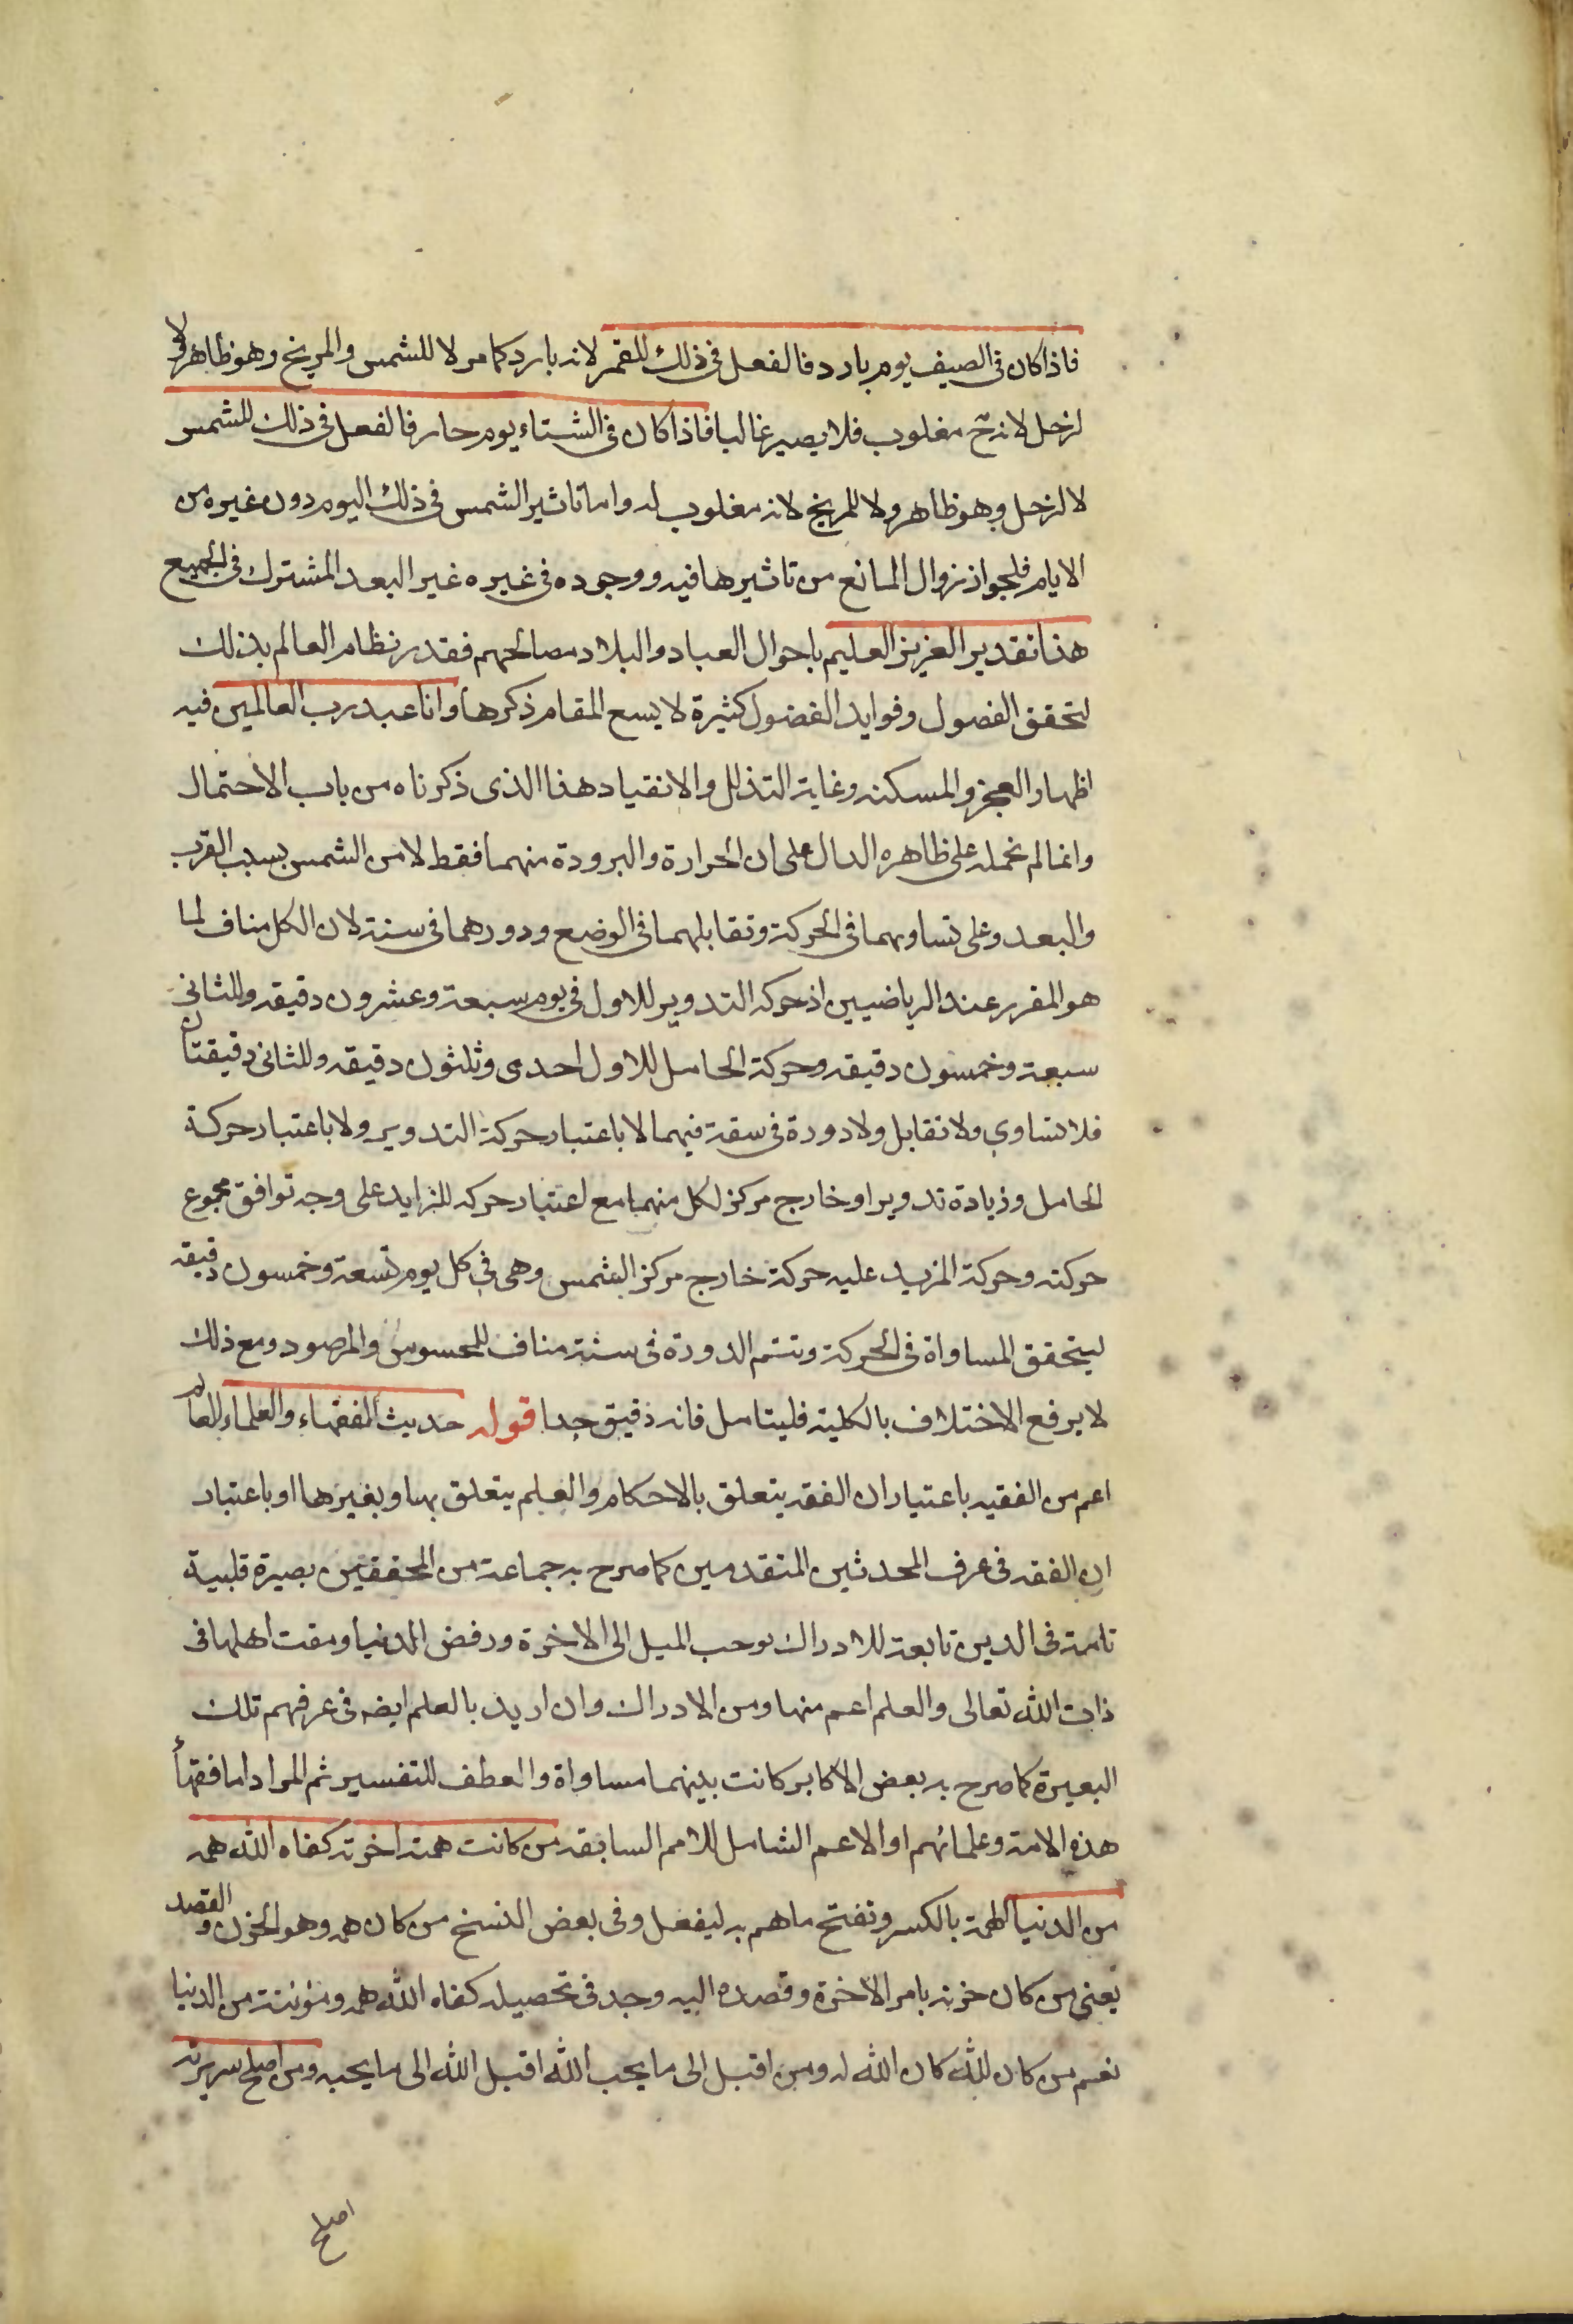 فاذا كان فى الصيف يوم بارد فالفعل فى ذلك للقمر لانه بارد كما مر لا للشمس والمريخ وهو ظاهر ولا
لزحل لانه ح مغلوب فلا يصير غالبا فاذا كان فى الشتاء يوم حار فالفعل فى ذلك للشمس
لا لزحل وهو ظاهر ولا للمريخ لانه مغلوب له واما تاثير الشمس فى ذلك اليوم دون غيره من
الايام فلجواز زوال المانع من تاثيرها فيه ووجوده فى غيره غير البعد المشترك فى الجميع
هذا تقدير العزيز العليم باحوال العباد والبلاد مصالحهم فقدر نظام العالم بذلك
لتحقق الفصول وفوايد الفضول كثيرة لا يسع المقام ذكرها وانا عبد رب العالمين فيه
اظهار العجز والمسكنه وغاية التذلل والانقياد هذا الذى ذكرناه من باب الاحتمال
وانما لم نحمله على ظاهره الدال على ان الحرارة والبرودة منهما فقط لا من الشمس بسبب القرب
والبعد وعلى تساويهما فى الحركة وتقابلهما فى الوضع ودورهما فى سنة لان الكل مناف لما
هو المقرر عند الرياضيين اذ حركه التدوير للاول فى يوم سبعة وعشرون دقيقه وللثانى
سبعة وخمسون دقيقه وحركة الحامل للاول احدى وثلثون دقيقه وللثانى دقيقتان
فلا تساوي ولا تقابل ولا دورة فى سنة فيهما لا باعتبار حركة التدوير ولا باعتبار حركة
الحامل وزيادة تدوير او خارج مركز لكل منهما مع اعتبار حركه للزايد على وجه توافق مجموع
حركته وحركة المزيد عليه حركة خارج مركز الشمس وهى فى كل يوم تسعة وخمسون دقيقه
ليتحقق المساواة فى الحركة وتتم الدورة فى سنة مناف للمحسوس والمرصود ومع ذلك
لا يرفع الاختلاف بالكلية فليتامل فانه دقيق جدا قوله حديث الفقهاء والعلماء العالم
اعم من الفقيه باعتبار ان الفقه يتعلق بالاحكام والعلم يتعلق بها وبغيرها او باعتبار
ان الفقه فى عرف المحدثين المتقدمين كما صرح به جماعة من المحققين بصيرة قلبية
تامة فى الدين تابعة للادراك توجب الميل الى الاخرة ورفض الدنيا ومقت اهلها فى
ذات الله تعالى والعلم اعم منها ومن الادراك وان اريد بالعلم ايضه فى عرفهم تلك
البصيرة كما صرح به بعض الاكابر كانت بينهما مساواة والعطف للتفسير ثم المراد اما فقهأ
هذه الامة وعلمائهم او الاعم الشامل للامم السابقه من كانت همته اخرته كفاه الله همه
من الدنيا الهمة بالكسر وتفتح ما هم به ليفعل وفى بعض النسخ من كان همه وهو الحزن والقصد
يعنى من كان حزنه بامر الاخرة وقصده اليه وجد فى تحصيله كفاه الله همه ومؤنته من الدنيا
نعم من كان لله كان الله له ومن اقبل الى ما يحب الله اقبل الله الى ما يحبه ومن اصلح سريرته
اصلح